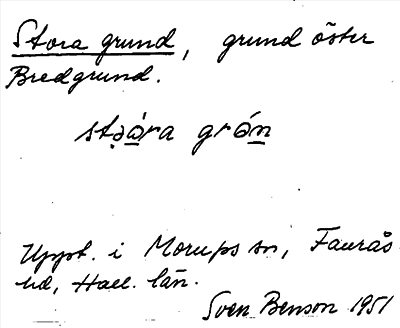 Stora grund, grund öster
Bredgrund.
stǝ̣ά̱ra grǿn̲
Uppt. i Morups sn, Faurås
hd, Hall. län.
Sven Benson 1951